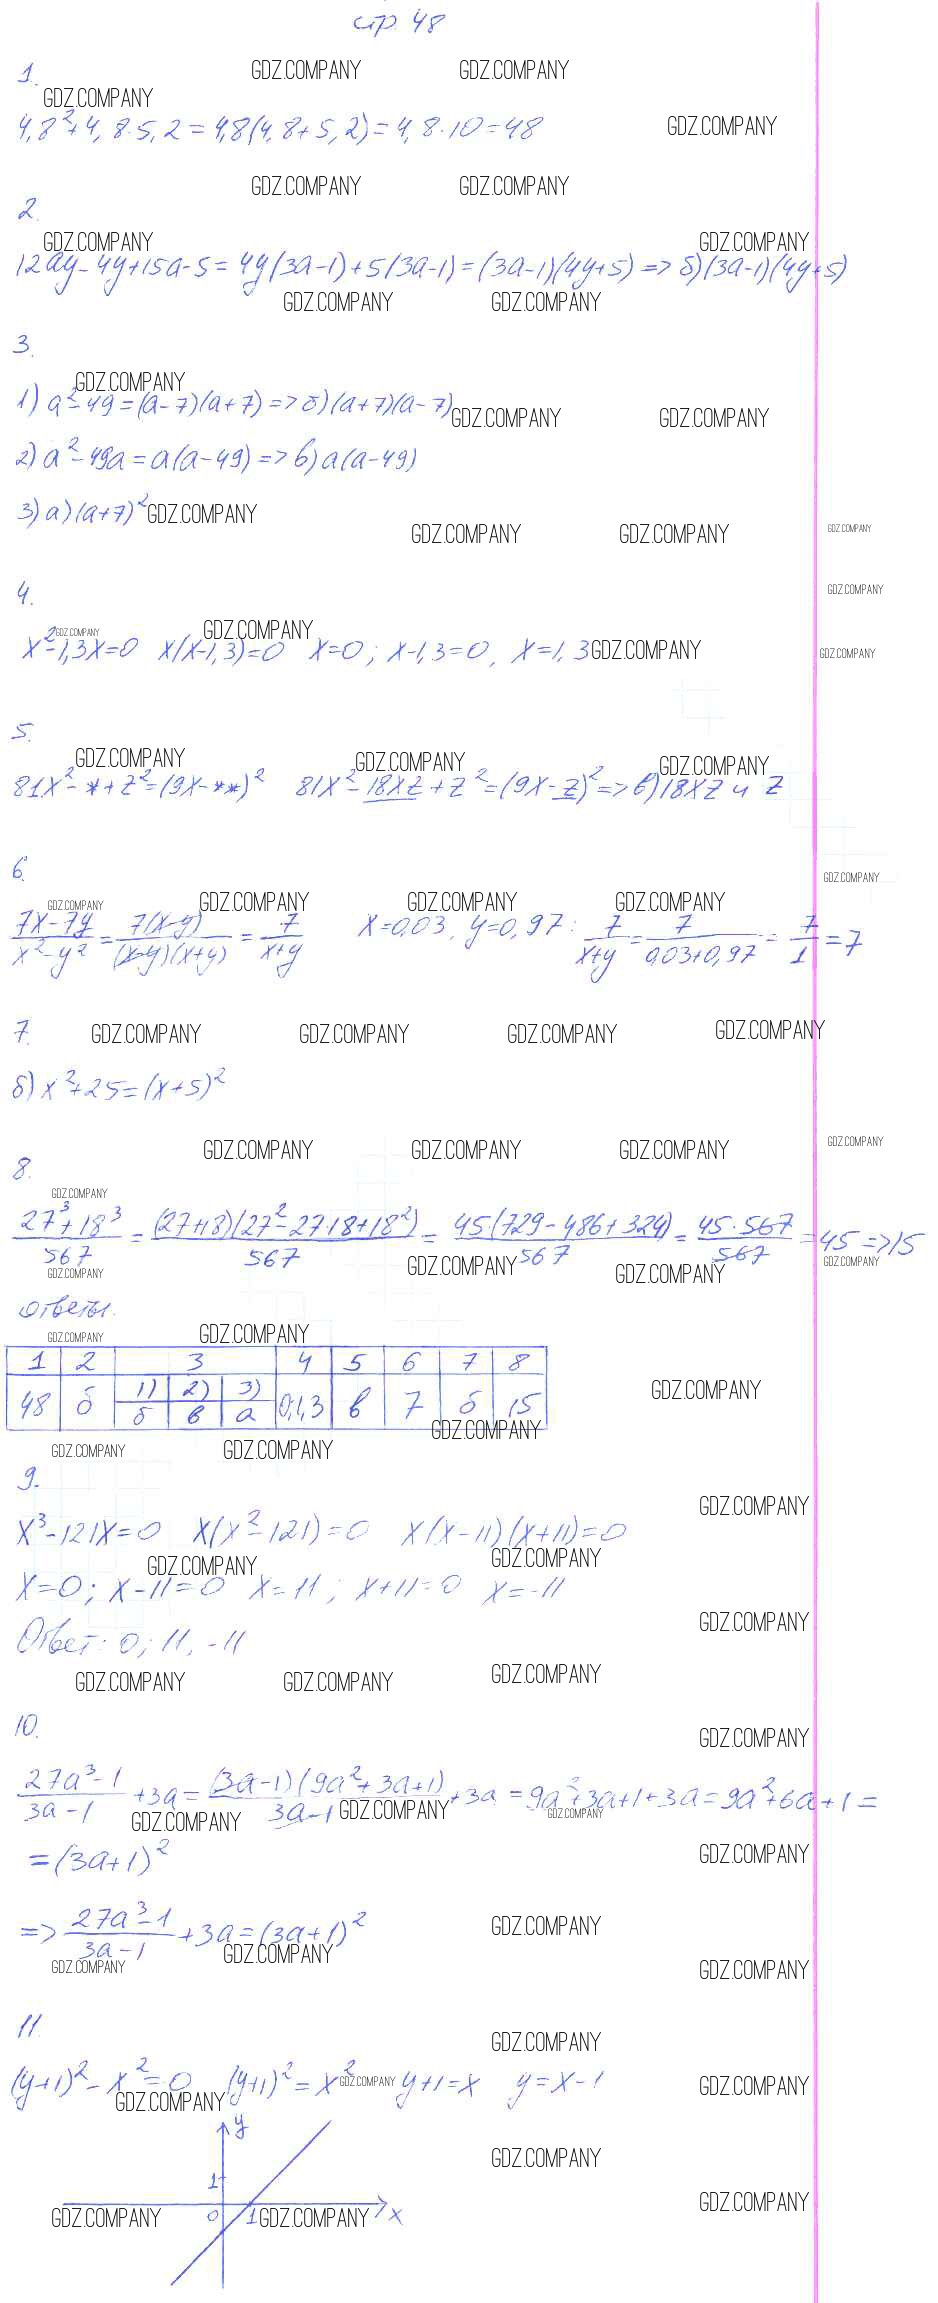 стр. 48
1.
4,8²+4,8·5,2=4,8(4,8+5,2)=4,8·10=48
2.
12ay-4y+15a-5=4y(3a-1)+5(3a-1)=(3a-1)(4y+5)=>б)(3a-1)(4y+5)
3.
1) a²-49=(a-7)(a+7)=>б)(a+7)(a-7)
2) a²-49a=a(a-49)=>в)a(a-49)
3) а)(a+7)²
4.
x²-1,3x=0 x(x-1,3)=0 x=0; x-1,3=0, x=1,3
5.
81x²-*+z²=(9x-**)² 81x²-18xz+z²=(9x-z)²=>в)18xz и z
6.
(7x-7y)/(x²-y²)=7(x-y)/((x-y)(x+y))=7/(x+y) x=0,03, y=0,97: 7/(x+y)=7/(0,03+0,97)=7/1=7
7.
б) x²+25=(x+5)²
8.
(27³+18³)/567=(27+18)(27²-27·18+18²)/567=45(729-486+324)/567=45·567/567=45=>15
ответы.
1 2 3 4 5 6 7 8
48 б 1) б 2) в 3) а 0;1,3 в 7 б 15
9.
x³-121x=0 x(x²-121)=0 x(x-11)(x+11)=0
x=0; x-11=0 x=11; x+11=0 x=-11
Ответ: 0; 11, -11
10.
(27a³-1)/(3a-1)+3a=(3a-1)(9a²+3a+1)/(3a-1)+3a=9a²+3a+1+3a=9a²+6a+1=
=(3a+1)²
=>(27a³-1)/(3a-1)+3a=(3a+1)²
11.
(y+1)²-x²=0 (y+1)²=x² y+1=x y=x-1
y
1
0 1 x
GDZ.COMPANY